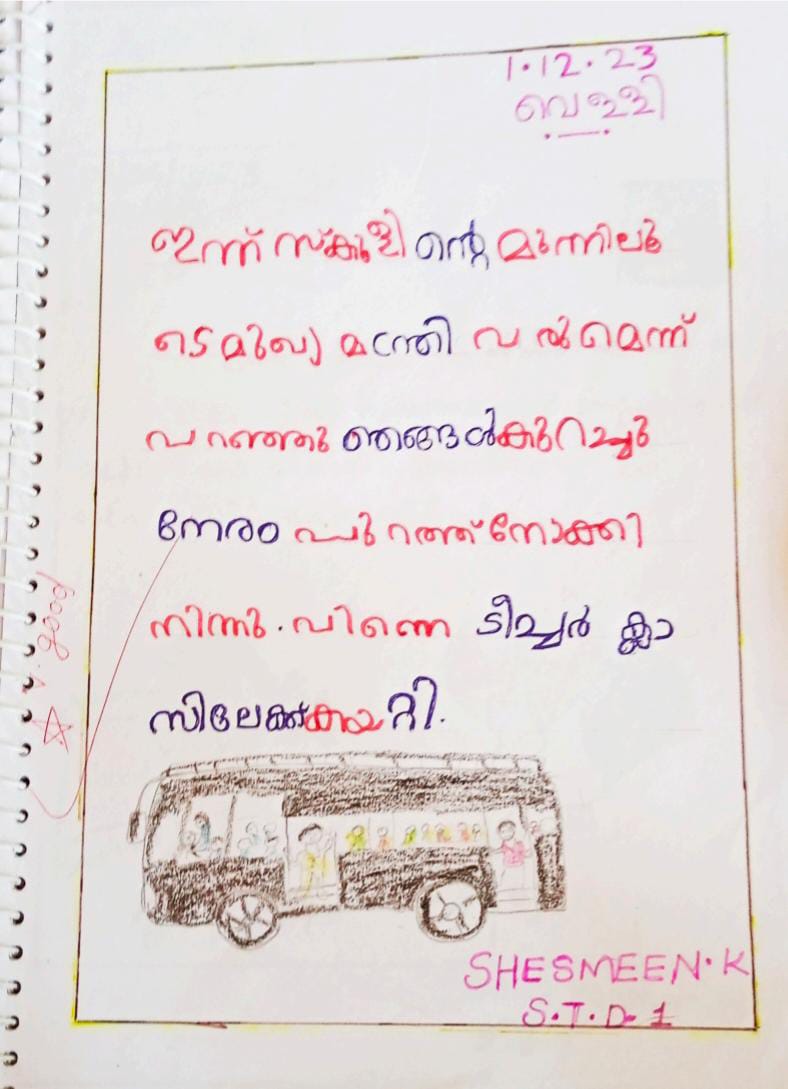 1.12.23
വെള്ളി
ഇന്ന് സ്കൂളി ന്റെ മുന്നിലൂ
ടെ മുഖ്യ മന്ത്രി വ രുമെന്ന്
പറഞ്ഞു ഞങ്ങൾ കുറച്ചു
നേരം പുറത്ത് നോക്കി
നിന്നു. പിന്നെ ടീച്ചർ ക്ലാ
സിലേക്ക് കയറ്റി.
v. good
SHESMEEN.K
S.T.D-1